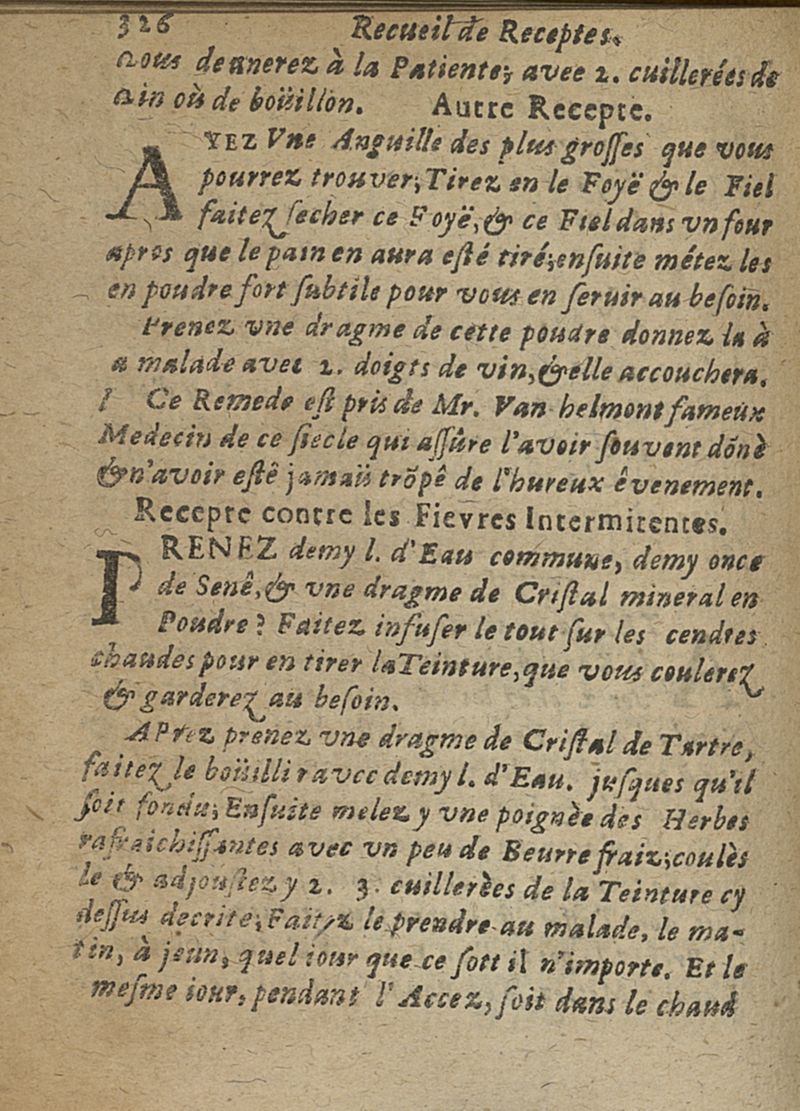 326 Recueil de Receptes.
vous donnerez à la Patiente; avec 2. cuillerées de
vin où de boüillon. Autre Recepte.
AYEZ Vne Anguille des plus grosses que vous
pourrez trouver; Tirez en le Foyë & le Fiel
faitez secher ce Foyë, & ce Fiel dans vn four
apres que le pain en aura esté tiré; ensuite métez les
en poudre fort subtile pour vous en seruir au besoin.
Prenez vne dragme de cette poudre donnez la à
a malade avec 2. doigts de vin, & elle accouchera.
l Ce Remede est pris de Mr. Van helmont fameux
Medecin de ce siecle qui assûre l'avoir souvent dõnè
& n'avoir estê jamais trõpê de l'hureux êvenement.
Recepte contre les Fievres Intermitentes.
PRENEZ demy l. d'Eau commune, demy once
de Senê, & vne dragme de Cristal mineral en
Poudre? Faitez infuser le tout sur les cendres
chaudes pour en tirer la Teinture, que vous coulerez
& garderez au besoin.
APrez prenez vne dragme de Cristal de Tartre,
faitez le boüillir avec demy l. d'Eau. jusques qu'il
soit fondu; Ensuite melez y vne poignèe des Herbes
rafraichissantes avec vn peu de Beurre fraiz; coulès
le & adjoustez y 2. 3. cuillerèes de la Teinture cy
dessus decrite; Faitez le prendre au malade, le ma-
tin, à jeun, quel iour que ce soit il n'importe. Et le
mesme iour, pendant l'Accez, soit dans le chaud